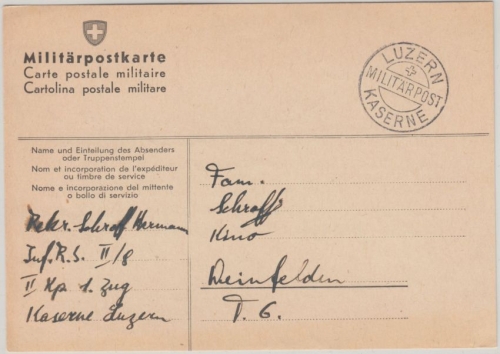 Militärpostkarte
Carte postale militaire
Cartolina postale militare
LUZERN
MILITÄRPOST
KASERNE
Name und Einteilung des Absenders
oder Truppenstempel
Nom et incorporation de l'expéditeur
ou timbre de service
Nome e incorporazione del mittente
o bollo di servizio
Rekr. Schroff Hermann
Inf. R. S. II/8
II Kp 1. Zug
Kaserne Luzern
Fam.
Schroff
Kino
Weinfelden
T. G.